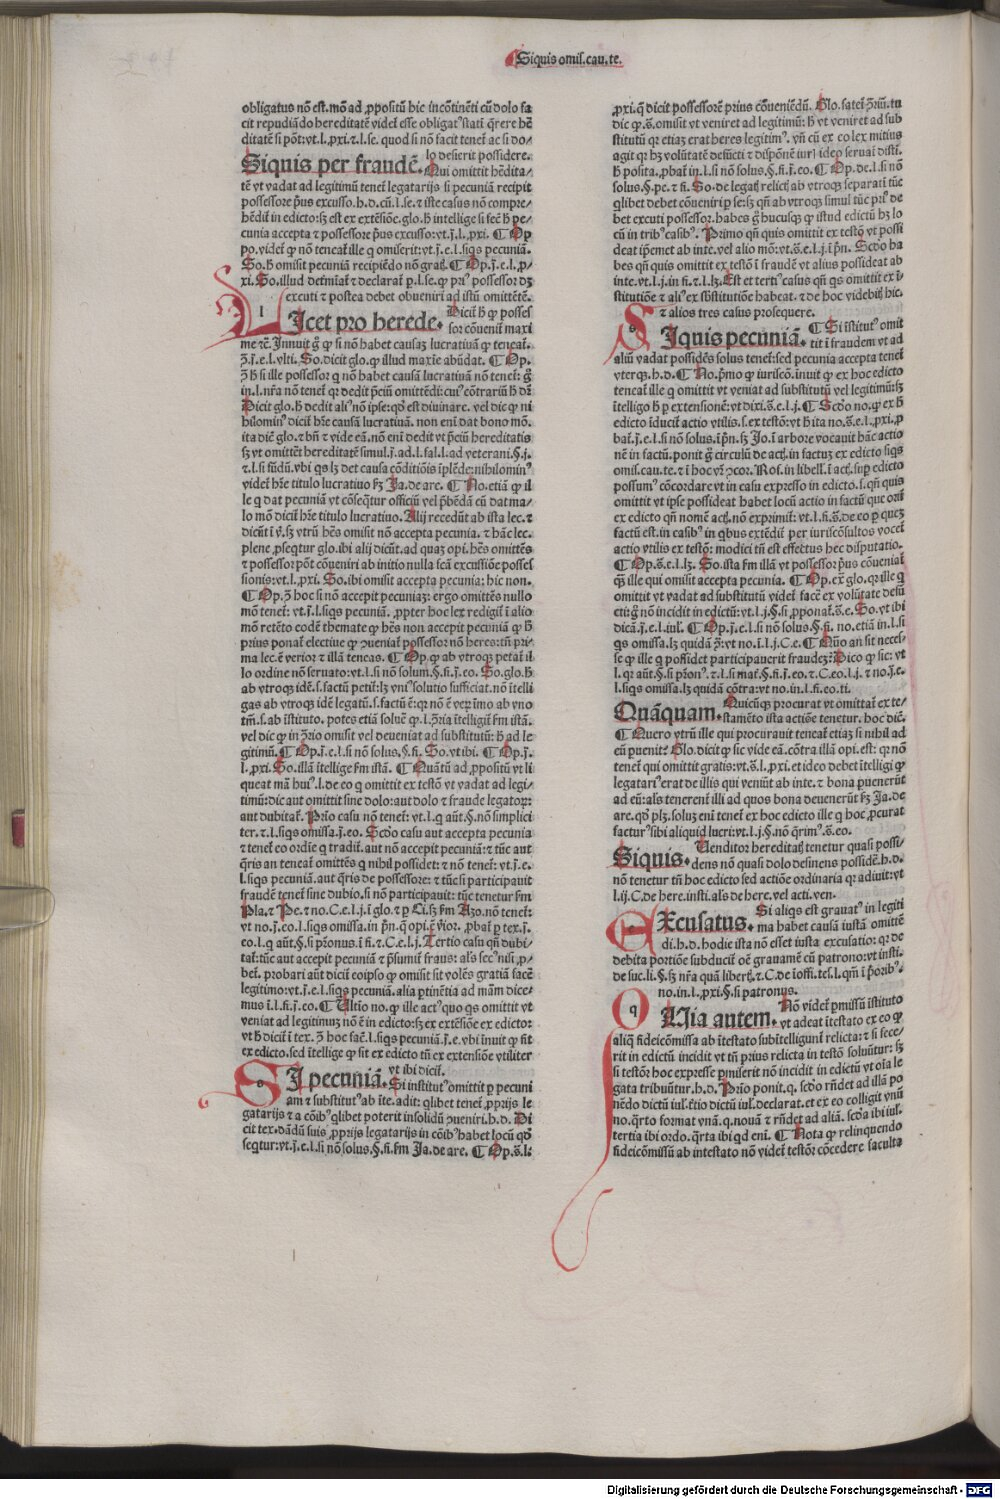 Siquis omis. cau. te.
obligatus nõ est. mõ ad ꝓpositũ hic incõtinẽti cũ dolo fa
cit repudiãdo hereditatẽ videt̃ esse obligatꝰ statĩ q̃rere he
ditatẽ si põt: vt.l.ꝓxi.⁊.l.se. quod si nõ facit tenet̃ ac si do⸗
lo desierit possidere.
Siquis per fraudẽ. Qui omittit hẽdita⸗
tẽ vt vadat ad legitimũ tenet̃ legatarijs si pecuniã recipit
possessore p̃us excusso.h.d.cũ.l.se. ⁊ iste casus nõ compre⸗
hẽdit̃ in edicto: sꝫ est ex extẽsiõe. glo. h̃ intellige si fecit h̃ pe⸗
cunia accepta ⁊ possessore p̃us excusso: vt.j̃.l.ꝓxi. ¶ Op
po. videt̃ ꝙ nõ teneat̃ ille q omiserit: vt.j̃.e.l.siqs pecuniã.
So. h̃ omisit pecuniã recipiẽdo nõ gratꝭ. ¶ Op.j̃.e.l.ꝓ⸗
xi. So. illud det̃miat̃ ⁊ declarat̃ p.l.se. ꝙ priꝰ possessor dꝫ
excuti ⁊ postea debet obueniri ad istũ omittẽtẽ.
LIcet pro herede. Dicit h̃ ꝙ posses
sor cõuenit̃ maxi
me ⁊c̃. Innuit g̃ ꝙ si nõ habet causaꝫ lucratiuã ꝙ teneat̃.
ɔ̃.j̃.e.l.vlti. So. dicit glo. ꝙ illud maxie abũdat. ¶ Op.
ɔ̃ h̃ si ille possessor q nõ habet causã lucratiuã nõ tenet̃: g̃
in.l.nr̃a nõ tenet̃ qr dedit p̃ciũ omittẽdi: cuiꝰ cõtrariũ h̃ dr̃
Dicit glo. h̃ dedit aliꝰ nõ ipse: qd̃ est diuinare. vel dic ꝙ ni
hilominꝰ dicit̃ hr̃e causã lucratiuã. non eni dat bono mõ.
ita dic̃ glo. ⁊ bñ ⁊ vide eã. nõ eni dedit vt p̃ciũ hereditatis
sꝫ vt omittẽt hereditatẽ simul.j̃.ad.l.fal.l.ad veterani.§.j.
⁊.l.si fũdũ. vbi qs lꝫ det causa cõditiõis iplẽde: nihilominꝰ
videt̃ hr̃e titulo lucratiuo fꝫ Ja. de are. ¶ No. etiã ꝙ il
le q dat pecuniã vt cõseq̃tur officiũ vel p̃bẽdã cũ dat ma⸗
lo mõ dicit̃ hr̃e titulo lucratiuo. Alij recedũt ab ista lec. ⁊
plene ꝓseq̃tur glo. ibi alij dicũt. ad quaꝫ opi. hẽs omittẽs
⁊ possessor põt cõueniri ab initio nulla fcã excussiõe posses
sionis: vt.l.ꝓxi. So. ibi omisit accepta pecunia: hic non.
¶ Op. ɔ̃ hoc si nõ accepit pecuniaꝫ: ergo omittẽs nullo
mõ tenet̃: vt.j̃.l.siqs pecuniã. ꝓpter hoc lex redigit̃ ĩ alio
mõ retẽto eodẽ themate ꝙ hẽs non accepit pecuniã ꝙ h̃
prius ponat̃ electiue ꝙ ɔueniat̃ possessor nõ heres: tñ pri⸗
ma lec. ẽ verior ⁊ illã teneas. ¶ Op. ꝙ ab vtroqꝫ petat̃ il
lo ordine nõ seruato: vt.l.si nõ solum.§.fi.j̃.eo. So. glo. h̃
ab vtroqꝫ idẽ.s.factũ petit̃: lꝫ vniꝰ solutio sufficiat. nõ ĩtelli
gas ab vtroqꝫ idẽ legatũ.s.factũ ẽ: qr nõ ẽ verꝫ imo ab vno
tm̃.s.ab ĩstituto. potes etiã soluẽ ꝙ.l.ɔ̃ria ĩtelligit̃ fm istã.
vel dic ꝙ in ɔ̃rio omisit vel deueniat ad substitutũ: h̃ ad le
gitimũ. ¶ Op.j̃.e.l.si nõ solus.§.fi. So. vt ibi. ¶ Op.j̃.
l.ꝓxi. So. illã ĩtellige fm istã. ¶ Quãtũ ad ꝓpositũ vt li
queat mã huiꝰ.l.de eo q omittit ex testõ vt vadat ad legi⸗
timũ: dic aut omittit sine dolo: aut dolo ⁊ fraude legatoꝝ:
aut dubitat̃. Prio casu nõ tenet̃: vt.l.q aũt.§.nõ simplici
ter. ⁊.l.siqs omissa.j̃.eo. Scd̃o casu aut accepta pecunia
⁊ tenet̃ eo ordie q tradit̃. aut nõ accepit pecuniã: ⁊ tũc aut
q̃ris an teneat̃ omittẽs q nihil possidet: ⁊ nõ tenet̃: vt.j̃.e.
l.siqs pecuniã. aut q̃ris de possessore: ⁊ tũc si participauit
fraudẽ tenet̃ sine dubio. si nõ participauit: tũc tenetur fm
Pla. ⁊ Pe. ⁊ no. C.e.l.j.ĩ glo. ⁊ p Ci. sꝫ fm Azo. nõ tenet̃:
vt no.j̃.eo.l.siqs omissa. in pñ. q opi. ẽ v̾ior. ꝓbat̃ p tex.j̃.
eo.l.q aũt.§.si p̃onus.ĩ fi. ⁊ C.e.l.j. Tertio casu qñ dubi⸗
tat̃: tũc aut accepit pecuniã ⁊ p̃sumit̃ fraus: als secꝰ nisi ꝓ⸗
bet̃. probari aũt dicit̃ eoipso ꝙ omisit sit volẽs gratiã facẽ
legitimo: vt.j̃.e.l.siqs pecuniã. alia ptinẽtia ad mãm dice⸗
mus ĩ.l.fi.j̃.eo. ¶ Vltio no. ꝙ ille actꝰ quo qs omittit vt
veniat ad legitimuꝫ nõ ẽ in edicto: sꝫ ex extẽsiõe ex edicto:
vt h̃ dicit̃ ĩ tex. ɔ̃ hoc fac̃.l.siqs pecuniã.j̃.e. vbi ĩnuit ꝙ sit
ex edicto. sed ĩtellige ꝙ sit ex edicto tñ ex extensiõe vtiliter
vt ibi dicit̃.
SI pecuniã. Si institutꝰ omittit p pecuni
am ⁊ substitutꝰ ab ĩte. adit: qlibet tenet̃ ꝓprijs le
gatarijs ⁊ a cõibꝰ qlibet poterit insolidũ ɔueniri. h.d. Di
cit tex. dãdũ suis ꝓprijs legatarijs in cõibꝰ habet locũ qd̃
seq̃tur: vt.j̃.e.l.si nõ solus.§.fi. fm Ja. de are. ¶ Op.s̃.l.
ꝓxi. q̃ dicit possessorẽ prius cõueniẽdũ. Glo. fatet̃ ɔ̃riũ. tu
dic ꝙ.s̃. omisit vt veniret ad legitimũ: h̃ vt veniret ad sub
stitutũ qr etiaꝫ erat heres legitimꝰ. vñ cũ ex eo lex mitius
agit qr hꝫ volũtatẽ defũcti ⁊ dispõnẽ iurꝭ ideo seruat̃ disti.
h̃ posita. ꝓbat̃ in.l.si nõ solus.§.fi.j̃.eo. ¶ Op. de.l.si nõ
solus.§.pe. ⁊ fi. So. de legatꝭ relictꝭ ab vtroqꝫ separatĩ tũc
qlibet debet cõueniri p se: sꝫ qñ ab vtroqꝫ simul tũc priꝰ de
bet excuti possessor. habes g̃ hucusqꝫ ꝙ istud edictũ hꝫ lo
cũ in tribꝰ casibꝰ. Primo qñ quis omittit ex testõ vt possi
deat ip̃emet ab inte. vel alio mõ: vt.s̃.e.l.j.ĩ pñ. Scd̃o ha
bes qñ quis omittit ex testõ ĩ fraudẽ vt alius possideat ab
inte. vt.l.j.in fi. ⁊.l.lꝫ. Est et tertiꝰ casus qñ qs omittit ex ĩ⸗
stitutiõe ⁊ aliꝰ ex sb̃stitutiõe habeat. ⁊ de hoc videbitꝭ hic.
⁊ alios tres casus prosequere.
SIquis pecuniã. ¶ Si ĩstitutꝰ omit
tit ĩ fraudem vt ad
aliũ vadat possidẽs solus tenet̃: sed pecunia accepta tenet̃
vterqꝫ. h.d. ¶ No. p̃mo ꝙ iuriscõ. inuit ꝙ ex hoc edicto
teneat̃ ille q omittit vt veniat ad substitutũ vel legitimũ: sꝫ
ĩtelligo h̃ p extensionẽ: vt dixi.s̃.e.l.j. ¶ Scd̃o no. ꝙ ex h̃
edicto ĩducit̃ actio vtilis.s.ex testõ: vt h̃ ita no.s̃.e.l.ꝓxi. ꝓ
bat̃.j̃.e.l.si nõ solus.ĩ pñ. sꝫ Jo. ĩ arbore vocauit hãc actio
nẽ in factũ. ponit g̃ circulũ de actꝭ. in factuꝫ ex edicto siqs
omis. cau. te. ⁊ ĩ hoc vr̃ ɔcor. Rof. in libell. ĩ act. sup edicto
possumꝰ cõcordare vt in casu expresso in edicto.s.qñ quis
omittit vt ip̃se possideat habet locũ actio in factũ que orit̃
ex edicto qñ nomẽ actꝭ. nõ exprimit̃: vt.l.fi.s̃.de eo p queꝫ
factũ est. in casibꝰ in qbus extẽdit̃ per iuriscõsultos vocet̃
actio vtilis ex testõ: modici tñ est effectus hec disputatio.
¶ Op.s̃.e.l.lꝫ. So. ista fm illã vt possessor p̃us cõueniat̃
q̃ꝫ ille qui omisit accepta pecunia. ¶ Op. ex̃ glo. qr ille q
omittit vt vadat ad substitutũ videt̃ facẽ ex volũtate defũ
cti: g̃ nõ incidit in edictũ: vt.l.j.§.si ꝓponat̃.s̃.e. So. vt ibi
dicã.j̃.e.l.iul. ¶ Op.j̃.e.l.si nõ solus.§.fi. no. etiã in.l.si
qs omissa.lꝫ quidã ɔ̃: vt no.ĩ.l.j.C.e. ¶ Quero an sit neces⸗
se ꝙ ille q possidet participauerit fraudeꝫ: Dico ꝙ sic: vt
l.qr aũt.§.si p̃onꝰ. ⁊.l.si mat̃.§.fi.j̃.eo. ⁊ C.eo.l.j. ⁊ no.j̃.e.
l.siqs omissa.lꝫ quidã cõtra: vt no.in.l.fi.eo.ti.
Quãquam. Quicũqꝫ procurat vt omittat̃ ex te⸗
stamẽto ista actiõe tenetur. hoc dic̃.
¶ Quero vtrũ ille qui procurauit teneat̃ etiaꝫ si nihil ad
eũ puenit: Glo. dicit ꝙ sic vide eã. cõtra illã opi. est: qr nõ
tenet̃ qui omittit gratis: vt.s̃.l.ꝓxi. et ideo debet ĩtelligi ꝙ
legatariꝰ erat de illis qui veniũt ab inte. ⁊ bona puenerũt
ad eũ: als tenerent̃ illi ad quos bona deuenerũt fꝫ Ja. de
are. qd̃ plꝫ. soluꝫ eni tenet̃ ex hoc edicto ille q hoc ꝓcurat
facturꝰ sibi aliquid lucri: vt.l.j.§.nõ q̃rimꝰ.s̃.eo.
Siquis. Uenditor hereditatꝭ tenetur quasi possi⸗
dens nõ quasi dolo desinens possidẽ. h.d.
nõ tenetur tñ hoc edicto sed actiõe ordinaria qr adiuit: vt
l.ij.C.de here. insti. als de here. vel acti. ven.
EXcusatus. Si aliqs est grauatꝰ in legiti
ma habet causã iustã omittẽ
di. h.d. hodie ista nõ esset iusta excusatio: qr de
debita portiõe subducit̃ oẽ grauamẽ cũ patrono: vt insti.
de suc. li.§.sꝫ nr̃a quã libertꝭ. ⁊.C.de ĩoffi. tes.l.qm̃ ĩ p̃oribꝰ.
no.in.l.ꝓxi.§.si patronus.
QUia autem. Nõ videt̃ p̃missũ ĩstituto
vt adeat ĩtestato ex eo ꝙ
aliq̃ fideicõmissa ab ĩtestato subĩtelligunt̃ relicta: ⁊ si fece⸗
rit in edictũ incidit vt tñ prius relicta in testõ soluũtur: sꝫ
si testõr hoc expresse p̃miserit nõ incidit in edictũ vt oĩa le
gata tribuũtur. h.d. Prio ponit. q. scd̃o rñdet ad illã po
nẽdo dictũ iul. t̃tio dictũ iul. declarat. et ex eo colligit vnũ
no. q̃rto format vnã. q. nouã ⁊ rñdet ad aliã. scd̃a ibi iul.
tertia ibi ordo. q̃rta ibi qd eni. ¶ Nota ꝙ relinquendo
fideicõmissũ ab intestato nõ videt̃ testõr cõcedere faculta
Digitalisierung gefördert durch die Deutsche Forschungsgemeinschaft - DFG